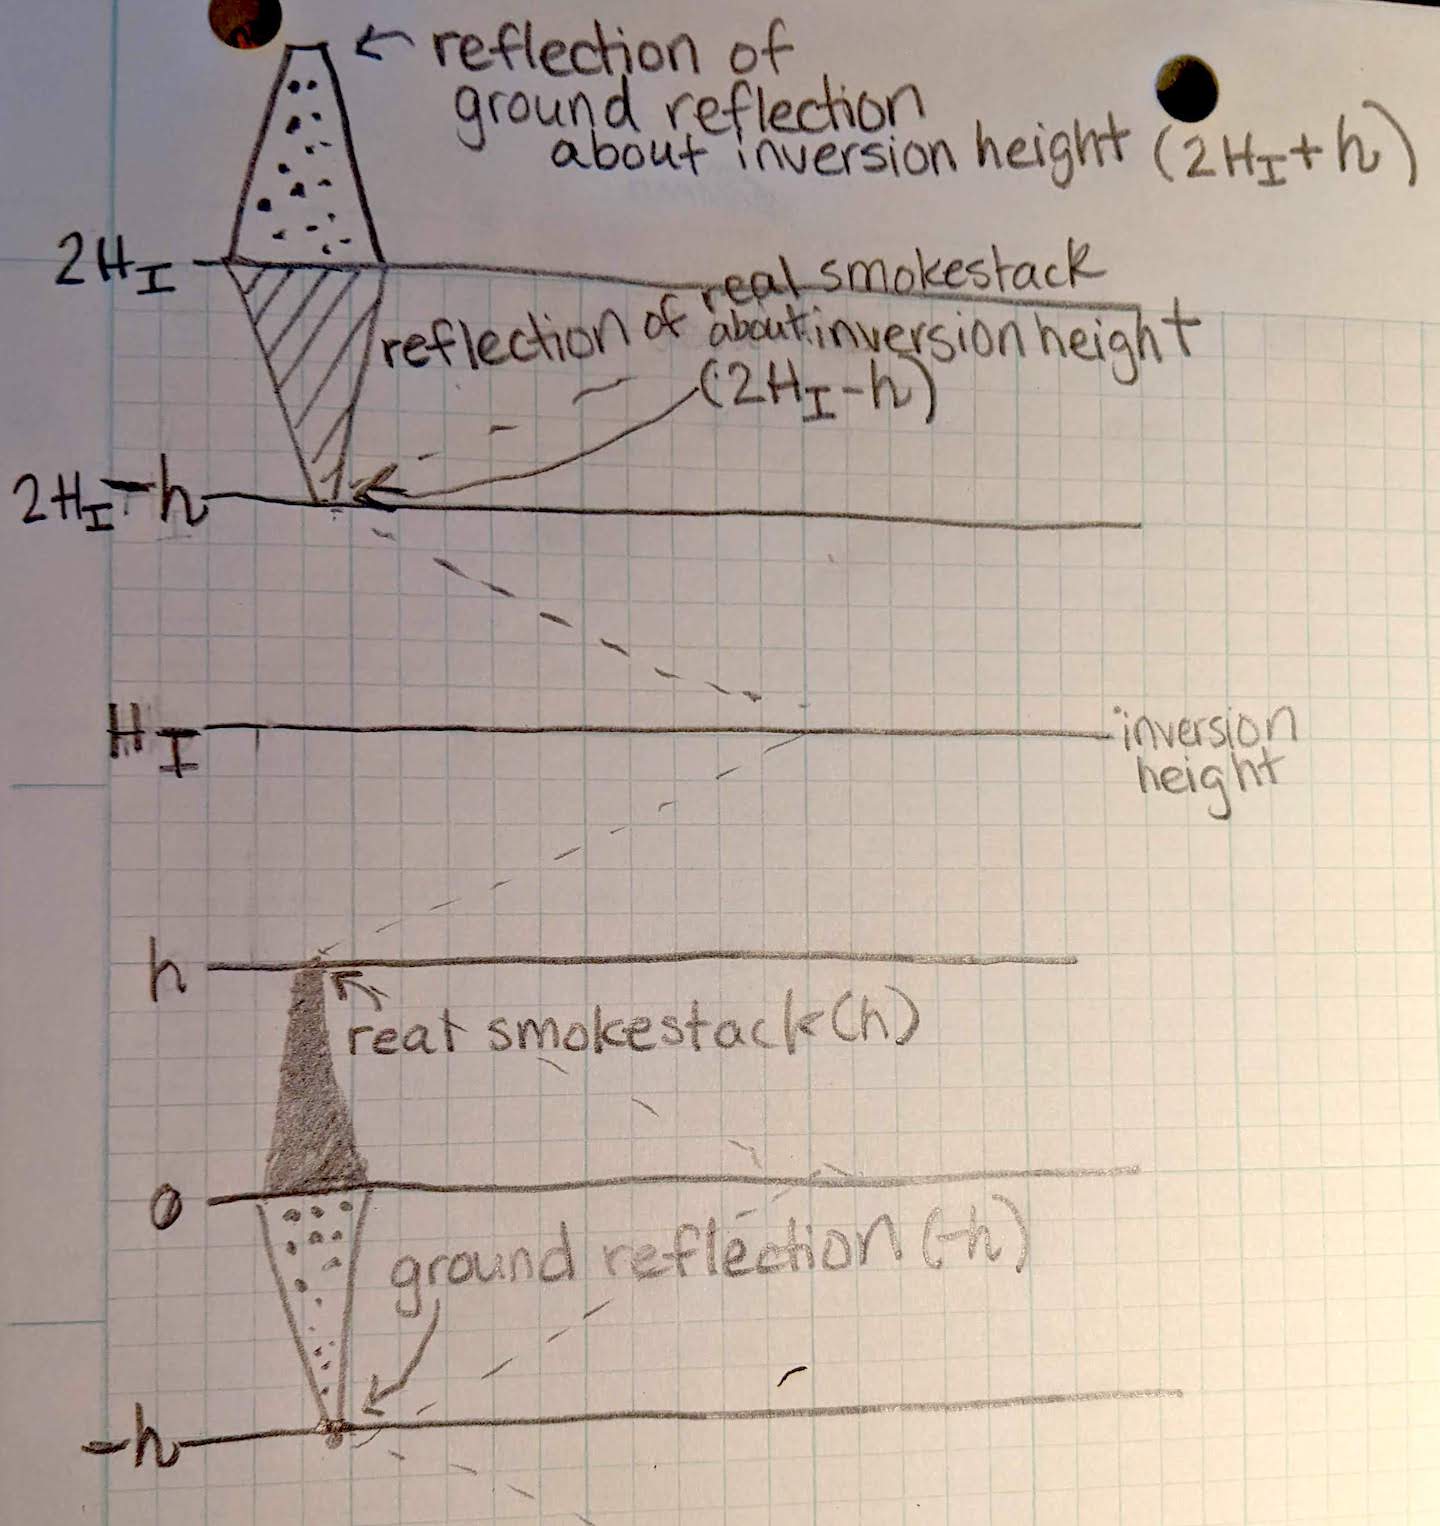 ← reflection of
ground reflection
about inversion height (2H_I + h)
2H_I
real smokestack
reflection of about inversion height
(2H_I - h)
2H_I - h
H_I
inversion
height
h
real smokestack (h)
0
ground reflection (-h)
-h